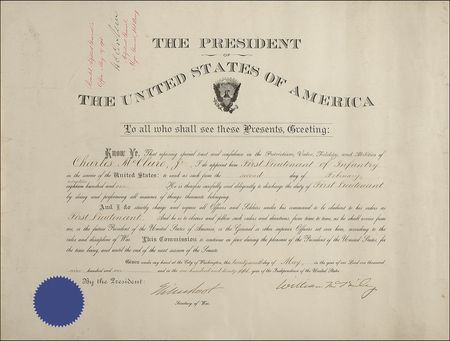 THE PRESIDENT
OF
THE UNITED STATES OF AMERICA
To all who shall see these Presents, Greeting:
Know Ye, That reposing special trust and confidence in the Patriotism, Valor, Fidelity, and Abilities of
Charles McClure, Jr. I do appoint him First Lieutenant of Infantry
in the service of the United States: to rank as such from the second day of February,
hundred and one. He is therefore carefully and diligently to discharge the duty of First Lieutenant
by doing and performing all manner of things thereunto belonging.
And I do strictly charge and require all Officers and Soldiers under his command to be obedient to his orders as
First Lieutenant. And he is to observe and follow such orders and directions, from time to time, as he shall receive from
me, or the future President of the United States of America, or the General or other superior Officers set over him, according to the
rules and discipline of War. This Commission to continue in force during the pleasure of the President of the United States, for
the time being, and until the end of the next session of the Senate.
Given under my hand at the City of Washington, this day of May, in the year of our Lord one thousand
nine hundred and one and in the one hundred and twenty fifth year of the Independence of the United States.
By the President:
William McKinley
Elihu Root
Secretary of War.